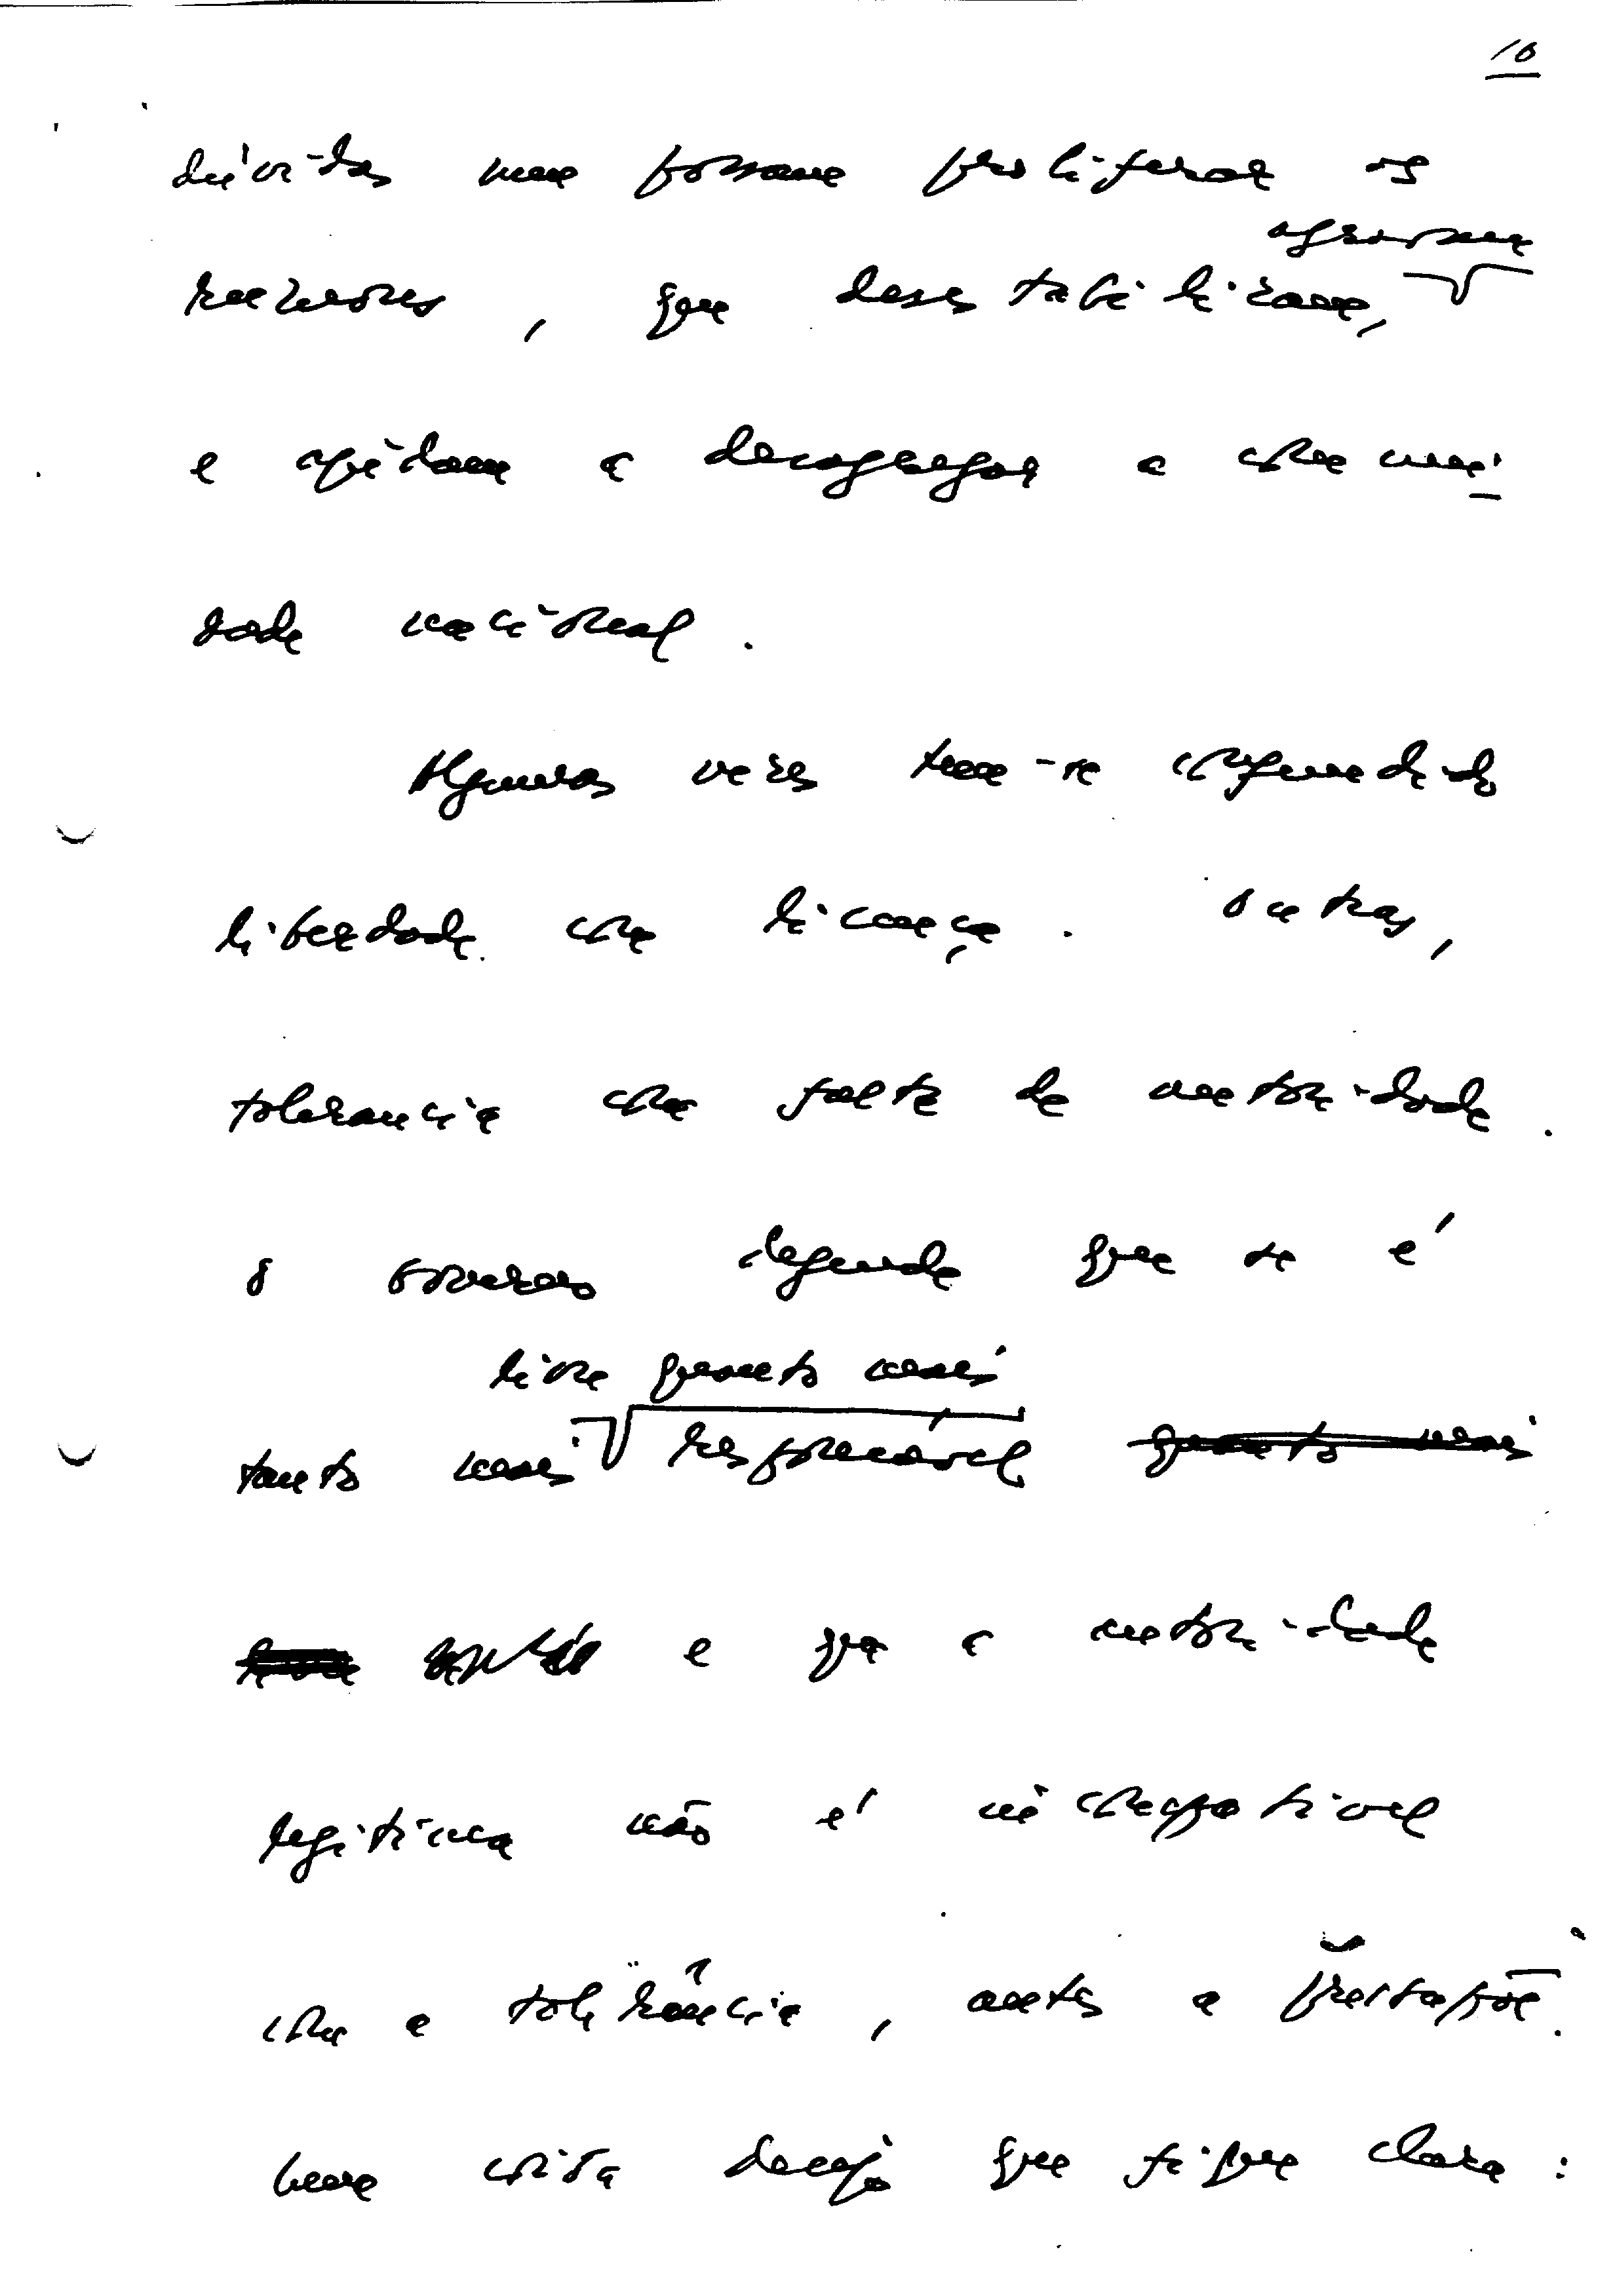 10
dúvidas nem possam proliferar os
agridem
rumores, que desestabilizam,
e ajudam a desagregar a comuni
dade nacional.
Algumas vezes tem-se confundido
liberdade com licença. Outras,
tolerancia com falta de autoridade.
O Governo defende que se é
livre quanto mais
tanto mais responsável quanto mais
livre e que a autoridade
legitima não é incompativel
com a tolerância, antes a pressupõe.
Uma coisa desejo que fique clara: